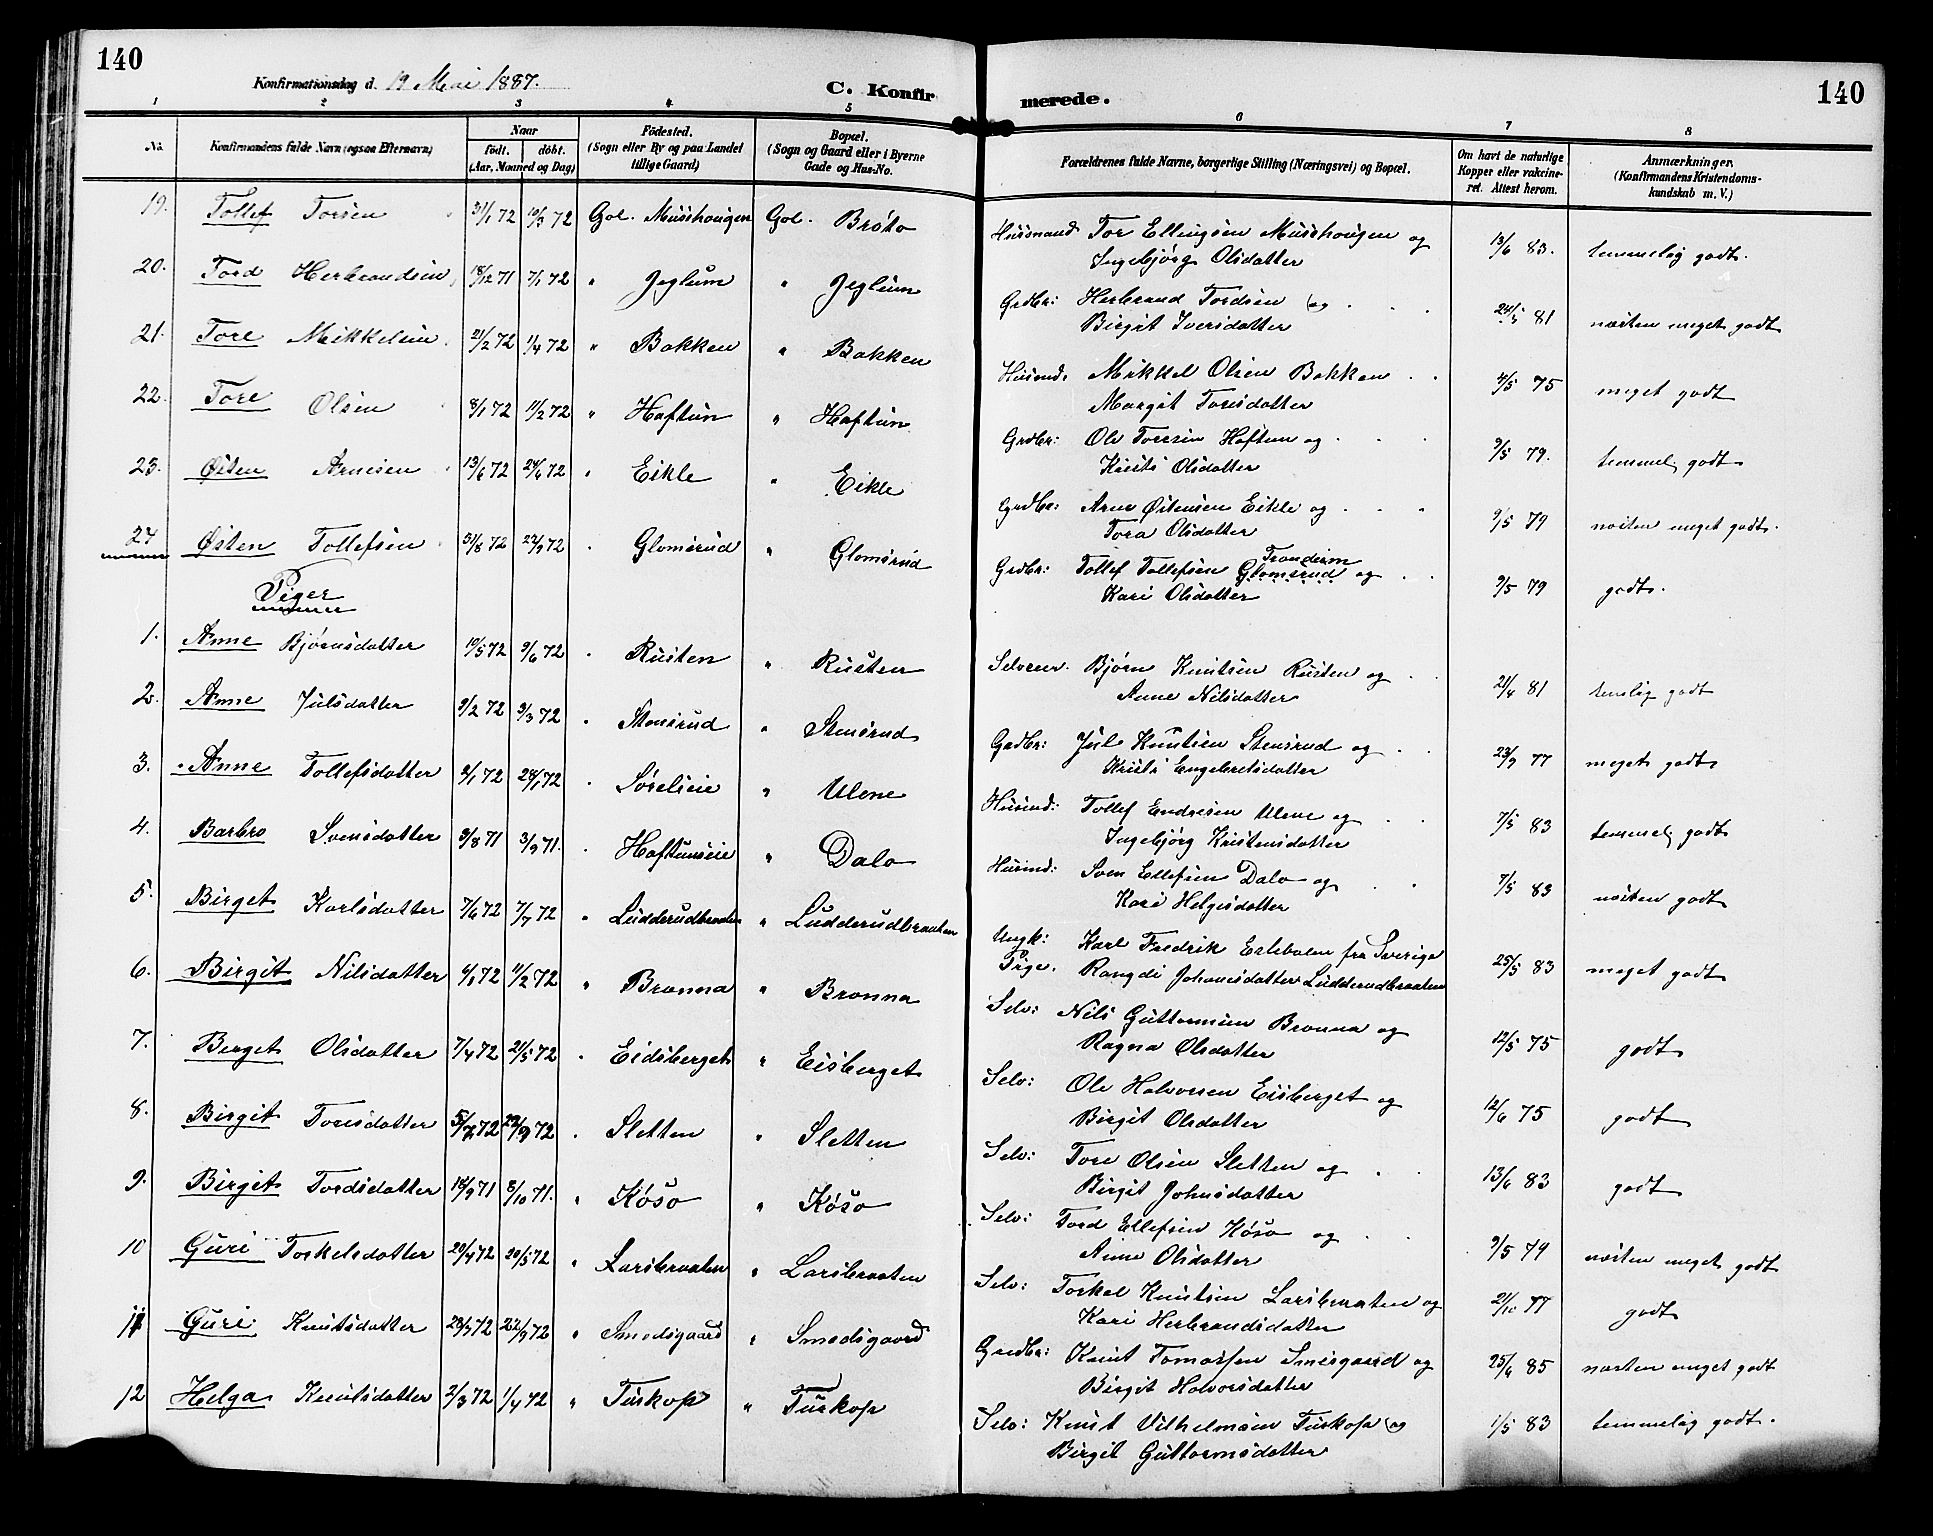 140
Konfirmationsdag d. 19 Mai 1887.
C. Konfirmerede.
140
1 2 3 4 5 6 7 8
No. Konfirmandens fulde Navn (ogsaa Efternavn) Naar födt. döbt. (Aar, Maaned og Dag) Födested. (Sogn eller By og paa Landet tillige Gaard) Bopæl. (Sogn og Gaard eller i Byerne Gade og Hus-No. Forældrenes fulde Navne, borgerlige Stilling (Næringsvei) og Bopæl. Om havt de naturlige Kopper eller vakcineret. Attest herom. Anmærkninger. (Konfirmandens Kristendomskundskab m. V.)
19. Tollef Torsen 31/1 72 10/3 72 Gol. Musshougen Gol. Brøto Husmand Tor Ellingsen Musshougen og 13/6 83. temmelig godt.
Ingebjørg Olsdatter
20. Tord Herbrandsen 18/12 71 7/1 72 " Jeglum " Jeglum Grdbr: Herbrand Tordsen og 24/5 81 næsten meget godt
Birgit Iversdatter
21. Tore Mikkelsen 21/2 72 1/4 72 " Bakken " Bakken Husmd. Mikkel Olsen Bakken 4/5 75 meget godt
Margit Toresdatter
22. Tore Olsen 8/1 72 11/2 72 " Haftun " Haftun Grdbr: Ole Toresen Haftun og 9/5 79. temmel. godt
Kristi Olsdatter
23. Østen Arnesen 13/6 72 24/6 72 " Eikle " Eikle Grdbr: Arne Østensen Eikle og 9/5 79 næsten meget godt.
Tora Olsdatter
24 Østen Tollefsen 31/8 72 22/9 72 " Glomsrud " Glomsrud Grdbr: Tollef Tollefsen Glomsrud og 9/5 79 godt.
Kari Olsdatter
Piger
1. Anne Bjørnsdatter 10/5 72 9/6 72 " Rusten " Rusten Selveier. Bjørn Knutsen Rusten og 21/4 81 temlig godt
Anne Nilsdatter
2. Anne Julsdatter 9/2 72 3/3 72 " Stensrud " Stensrud Gadbr: Jul Knutsen Stensrud og 23/9 77 meget godt
Kristi Engebretsdatter
3. Anne Tollefsdatter 2/1 72 28/1 72 " Sørelieie " Ulene Husmd: Tollef Endresen Ulene og 7/5 83 temmel. godt
Ingebjørg Kristensdatter
4. Barbro Svensdatter 3/8 71 3/9 71. " Haftunseie " Dalo Husmd: Sven Ellefsen Dalo og 7/5 83 næsten godt
Kari Helgesdatter
5. Birget Karlsdatter 7/6 72 7/7 72 " Ludderudbraaten " Ludderudbraaten Ungk: Karl Fredrik Eslebolen fra Sverige 25/5 83 meget godt
Pige. Rangdi Johannesdatter Ludderudbraaten
6. Birgit Nilsdatter 4/1 72 11/2 72 " Bronna " Bronna Selv: Nils Guttormsen Bronna og 12/5 75 godt
Ragna Olsdatter
7. Berget Olsdatter 7/4 72 21/5 72 " Eidsberget " Eisberget Selv: Ole Halvorsen Eisberget og 12/6 75 godt
Birgit Olsdatter
8. Birgit Toresdatter 5/7 72 22/9 72 " Sletten " Sletten Selv: Tore Olsen Sletten og 13/6 83 godt
Birgit Johnsdatter
9. Birgit Tordsdatter 18/9 71 8/10 71. " Køso " Køso Selv: Tord Ellefsen Køso og 9/5 79 næsten meget godt
Anne Olsdatter
10 Guri Torkelsdatter 20/4 72 20/5 72 " Larsbraaten " Larsbraaten Selv: Torkel Knutsen Larsbraaten og 21/10 77 godt
Kari Herbrandsdatter
11 Guri Knutsdatter 28/7 72 22/9 72 " Smedsgaard " Smedsgaard Grdbr: Knut Tomassen Smesgaard og 25/6 85 næsten meget godt
Birgit Halvorsdatter
12 Helga Knutsdatter 2/3 72 1/4 72 " Tuskop " Tuskop Selv: Knut Vilhelmsen Tuskop og 1/5 83 temmelig godt.
Birgit Guttormsdatter